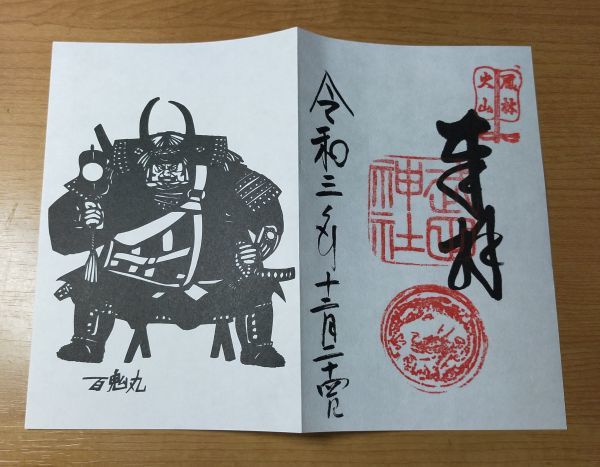 風林
火山
奉拝
武田
神社
令和三年十二月二十四日
百鬼丸